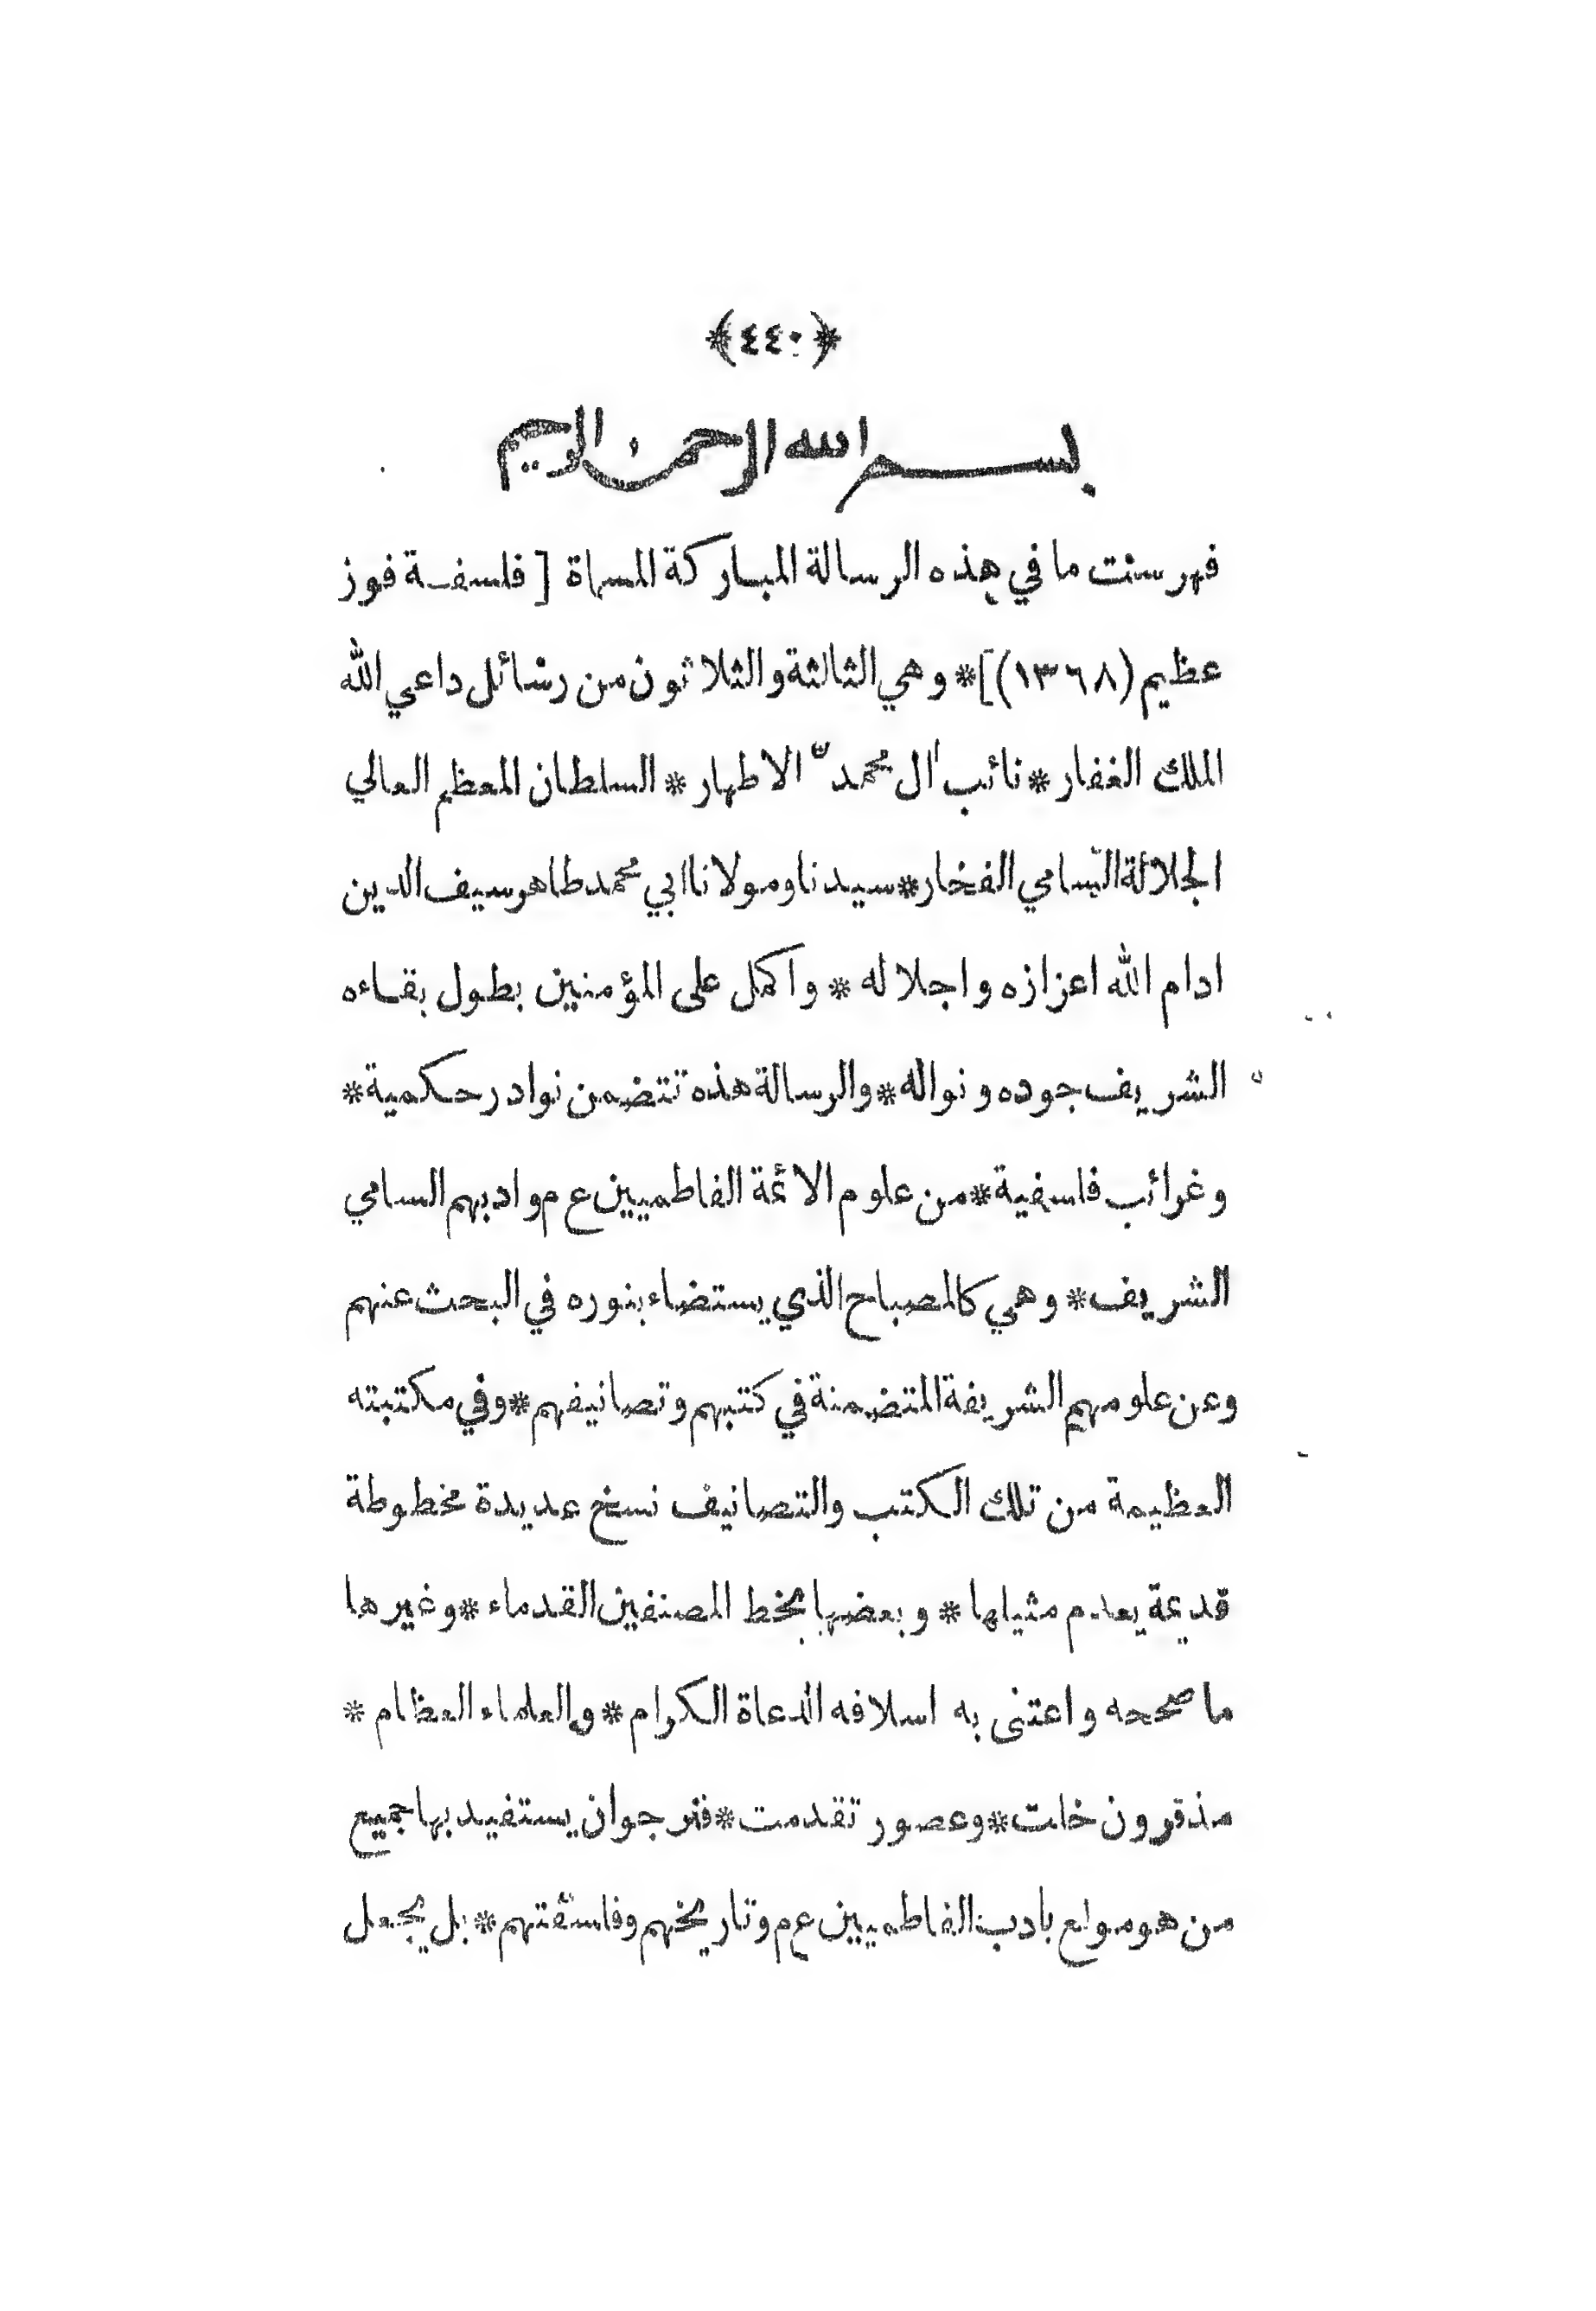 ﴿٤٤٠﴾
بسم الله الرحمن الرحيم
فهرست ما في هذه الرسالة المباركة المسماة [ فلسفة فوز
عظيم (١٣٦٨)]* وهي الثالثة والثلاثون من رسائل داعي الله
الملك الغفار * نائب اٰل محمد ص الاطهار * السلطان المعظم العالي
الجلالة السامي الفخار * سيدنا ومولانا ابي محمد طاهر سيف الدين
ادام الله اعزازه واجلاله * واكمل على المؤمنين بطول بقاءه
الشريف جوده ونواله * والرسالة هذه تتضمن نوادر حكمية *
وغرائب فلسفية * من علوم الائمة الفاطميين ع م وادبهم السامي
الشريف * وهي كالمصباح الذي يستضاء بنوره في البحث عنهم
وعن علومهم الشريفة المتضمنة في كتبهم وتصانيفهم * وفي مكتبته
العظيمة من تلك الكتب والتصانيف نسخ عديدة مخطوطة
قديمة يعدم مثيلها * وبعضها بخط المصنفين القدماء * وغيرها
ما صححه واعتنى به اسلافه الدعاة الكرام * والعلماء العظام *
مذ قرون خلت * وعصور تقدمت * فنرجو ان يستفيد بها جميع
من هو مولع بادب الفاطميين ع م وتاريخهم وفلسفتهم * بل يجعل